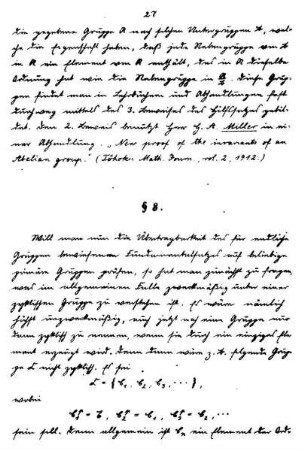 27
die gegebene Gruppe A nach solchen Untergruppen A, wel-
che die Eigenschaft haben, dass jede Nebengruppe von A
in A ein Element von A enthält, das in A dieselbe
Ordnung hat wie die Nebengruppe in A/A. Diese Grup-
pen findet man in Lehrbüchern und Abhandlungen fast
durchweg mittels des 3. Beweises des Hilfssatzes gebil-
det. Den 2. Beweis benutzt Herr G. A. Miller in ei-
ner Abhandlung. „New proof of the invariants of an
Abelian group." (Tôhok. Math. Journ. vol. 2, 1912.)
§ 8.
Will man nun die Übertragbarkeit des für endliche
Gruppen bewiesenen Fundamentalsatzes auf beliebige
primäre Gruppen prüfen, so hat man zunächst zu fragen,
was im allgemeinen Falle zweckmäßig unter einer
zyklischen Gruppe zu verstehen ist. Es wäre nämlich
höchst unzweckmäßig, auch jetzt noch eine Gruppe nur
dann zyklisch zu nennen, wenn sie durch ein einziges Ele-
ment erzeugt wird. Denn dann wäre z. B. folgende Grup-
pe L nicht zyklisch. Es sei
wobei
sein soll. Denn allgemein ist ein Element der Ord-